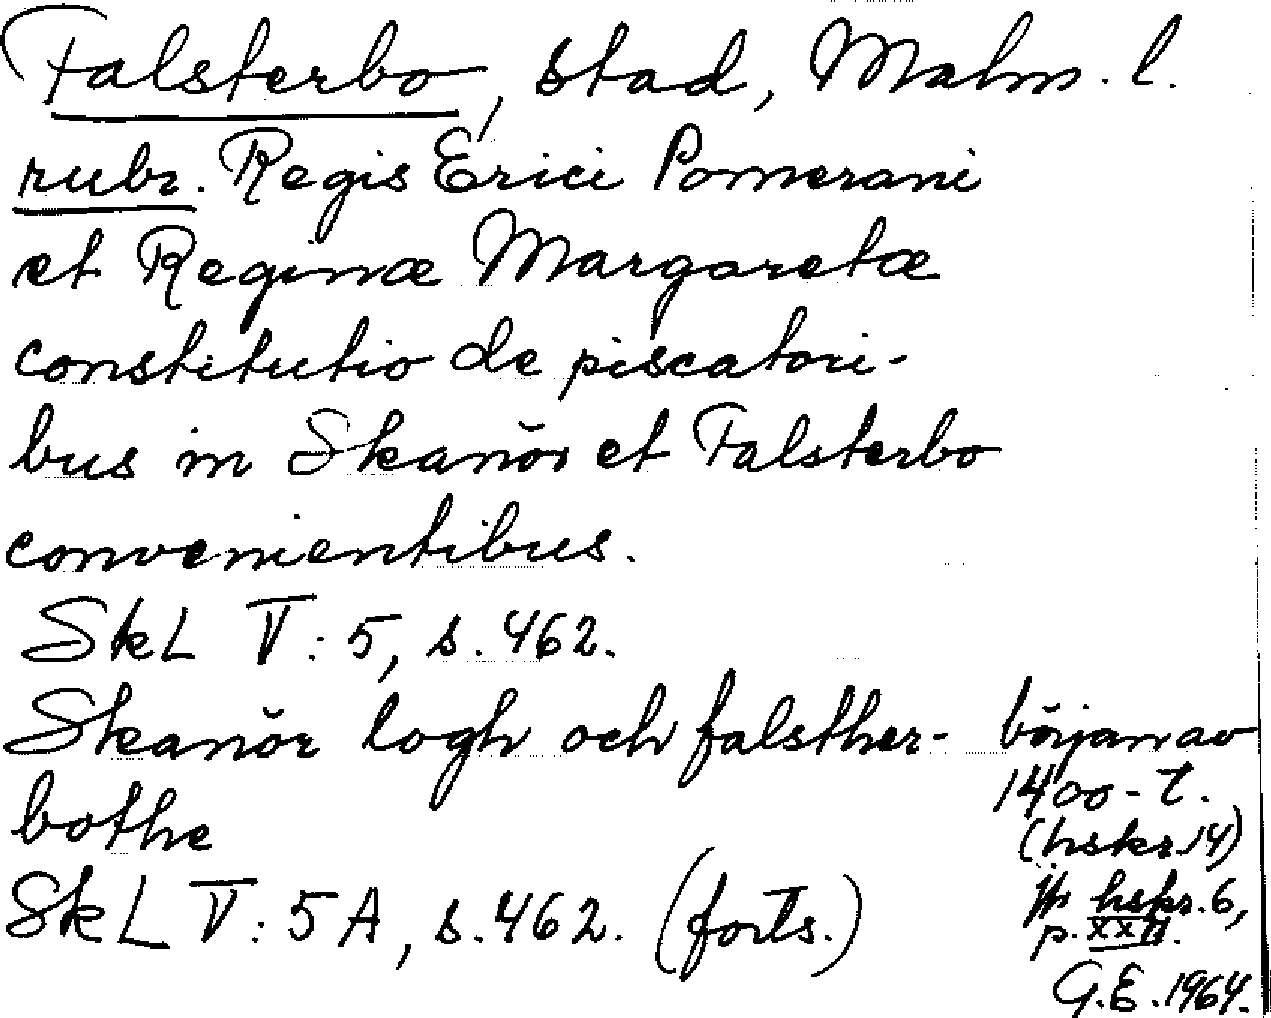 Falsterbo, stad, Malm. l.
rubr. Regis Erici Pomerani
et Reginæ Margaretæ
constitutio de piscatori-
bus in Skanör et Falsterbo
convenientibus.
SkL V: 5, s. 462.
Skanör logh och falsther-
bothe
början av
1400-t.
(hskr. 14)
SkL V: 5A, s. 462. (forts.)
jfr hskr. 6,
p. XXII.
G.E. 1964.